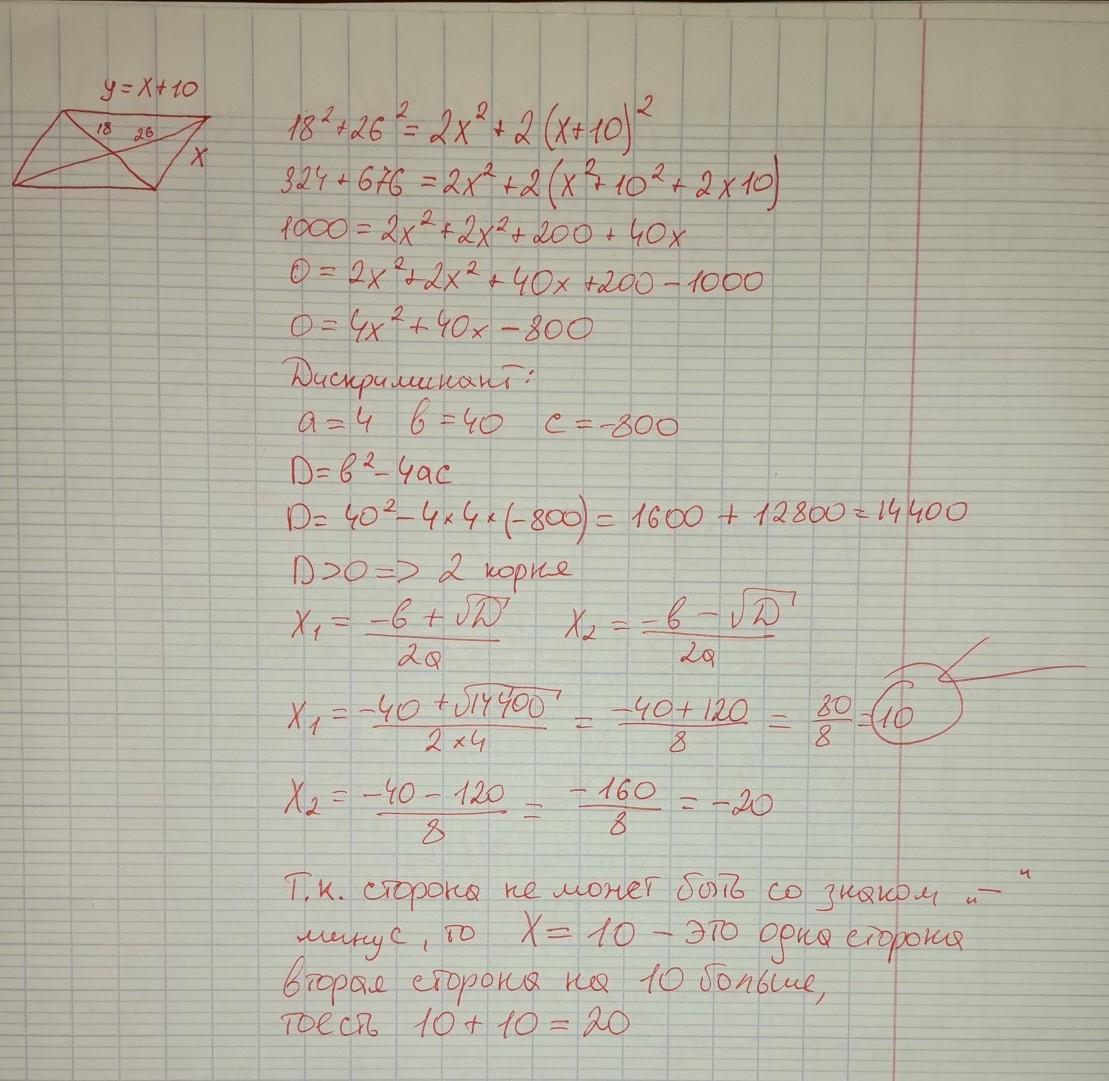 y = x+10
18 26
x
18² + 26² = 2x² + 2(x+10)²
324 + 676 = 2x² + 2(x² + 10² + 2x10)
1000 = 2x² + 2x² + 200 + 40x
0 = 2x² + 2x² + 40x + 200 - 1000
0 = 4x² + 40x - 800
Дискриминант:
a = 4 в = 40 c = -800
D = в² - 4ac
D = 40² - 4×4×(-800) = 1600 + 12800 = 14400
D>0 => 2 корня
X₁ = (-в + √D)/2a X₂ = (-в - √D)/2a
X₁ = (-40 + √14400)/(2×4) = (-40+120)/8 = 80/8 = 10
X₂ = (-40 - 120)/8 = -160/8 = -20
Т.к. сторона не может быть со знаком „−“
минус, то X = 10 - это одна сторона
вторая сторона на 10 больше,
тоесть 10 + 10 = 20